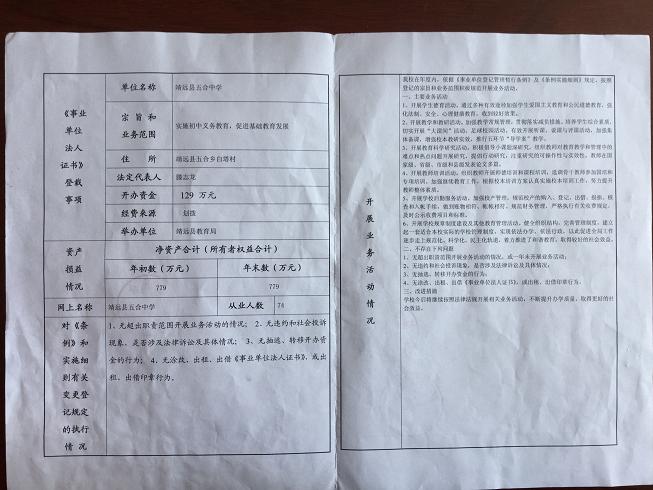 《事业
单位
法人
证书》
登载
事项
单位名称
靖远县五合中学
宗 旨 和
业务范围
实施初中义务教育，促进基础教育发展
住 所
靖远县五合乡白塔村
法定代表人
滕志龙
开办资金
129 万元
经费来源
划拨
举办单位
靖远县教育局
资产
损益
情况
净资产合计（所有者权益合计）
年初数（万元）
年末数（万元）
779
779
网上名称
靖远县五合中学
从业人数
74
对《条
例》和
实施细
则有关
变更登
记规定
的执行
情 况
1、无超出职责范围开展业务活动的情况； 2、无违约和社会投诉
现象、是否涉及法律诉讼及具体情况； 3、无抽逃、转移开办资
金的行为； 4、无涂改、出租、出借《事业单位法人证书》，或出
租、出借印章行为。
开
展
业
务
活
动
情
况
我校在年度内，依据《事业单位登记管理暂行条例》及《条例实施细则》规定，按照
登记的宗旨和业务范围积极规范开展业务活动。
一、主要业务活动
1、开展学生德育活动。通过多种有效途径加强学生爱国主义教育和公民道德教育，强
化法制、安全、心理健康教育，收到较好效果。
2、开展教学和教研活动。加强教学常规管理，贯彻落实减负措施，培养学生综合素质，
切实开展“大课间”活动、足球校园活动，有效开展听课、说课与评课活动，加强集
体备课，增强校本教研实效，推行五环节“导学案”教学。
3、开展教育科学研究活动。积极倡导小课题深研究，组织教师对教育教学和管理中的
难点和热点问题开展研究，提倡行动研究，注重研究的可操作性与实效性，教师在国
家级、省级、市级和县级发表论文多篇。
4、开展教师培训活动。组织教师开展师德培训和课程培训，选调骨干教师参加国培和
专项培训。加强继续教育工作，根据校本培训方案认真实施校本培训工作，努力提升
教师整体素质。
5、开展学校后勤服务活动。加强校产管理，规范校产的购入、登记、出借、报损，核
查和入帐手续，做到账物相符、帐帐相符，规范财务管理，严格执行有关收费规定，
及时公示收费项目和标准。
6、开展学校规章制度建设及其他教育管理活动。健全组织结构，完善管理制度，建立
起一套适合本校实际的学校管理制度，实现依法办学、依法行政，以此促进全局工作
逐步走上规范化、科学化、民主化轨道，着力推进了和谐教育，取得较好的社会效益。
二、不存在下列问题
1、无超出职责范围开展业务活动的情况，或一年未开展业务活动；
2、无违约和社会投诉现象，是否涉及法律诉讼及具体情况；
3、无抽逃、转移开办资金的行为；
4、无涂改、出租、出借《事业单位法人证书》，或出租、出借印章行为。
三、改进措施
学校今后将继续按照法律法规开展相关业务活动，不断提升办学质量，取得更好的社
会效益。